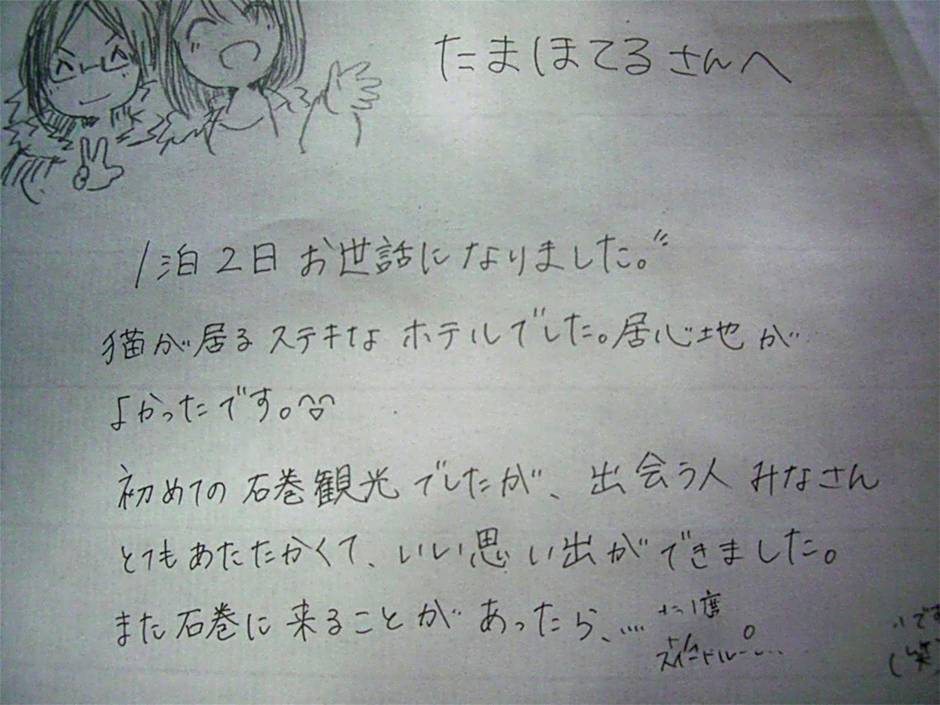 たまほてるさんへ
1泊2日 お世話になりました。
猫が居るステキな ホテルでした。居心地が
よかったです。
初めての 石巻観光 でしたが、出会う人 みなさん
とてもあたたかくて、いい思い出ができました。
また石巻に来ることがあったら、…
1度
スイートルー
です
(笑)